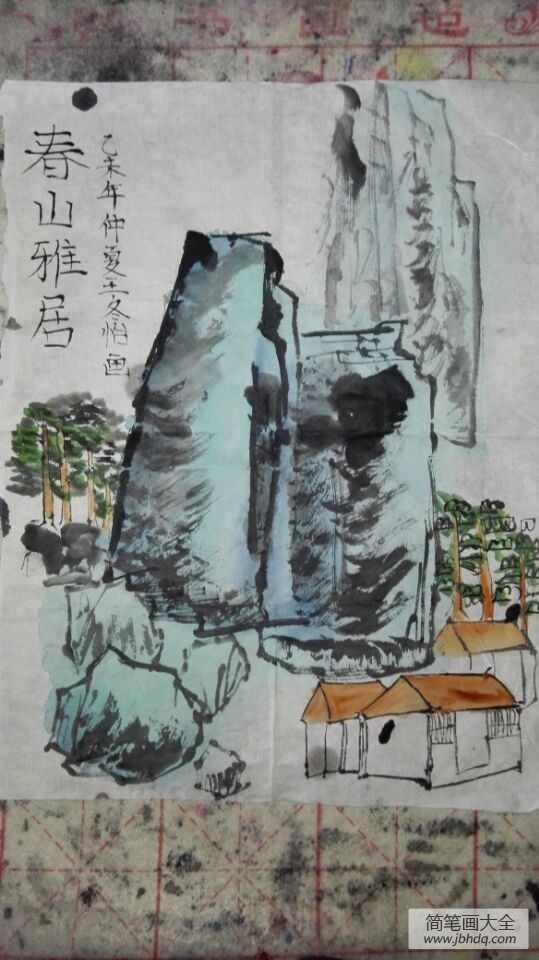 春山雅居
乙未年仲夏王冬怡画
简笔画大全
www.jbhdq.com